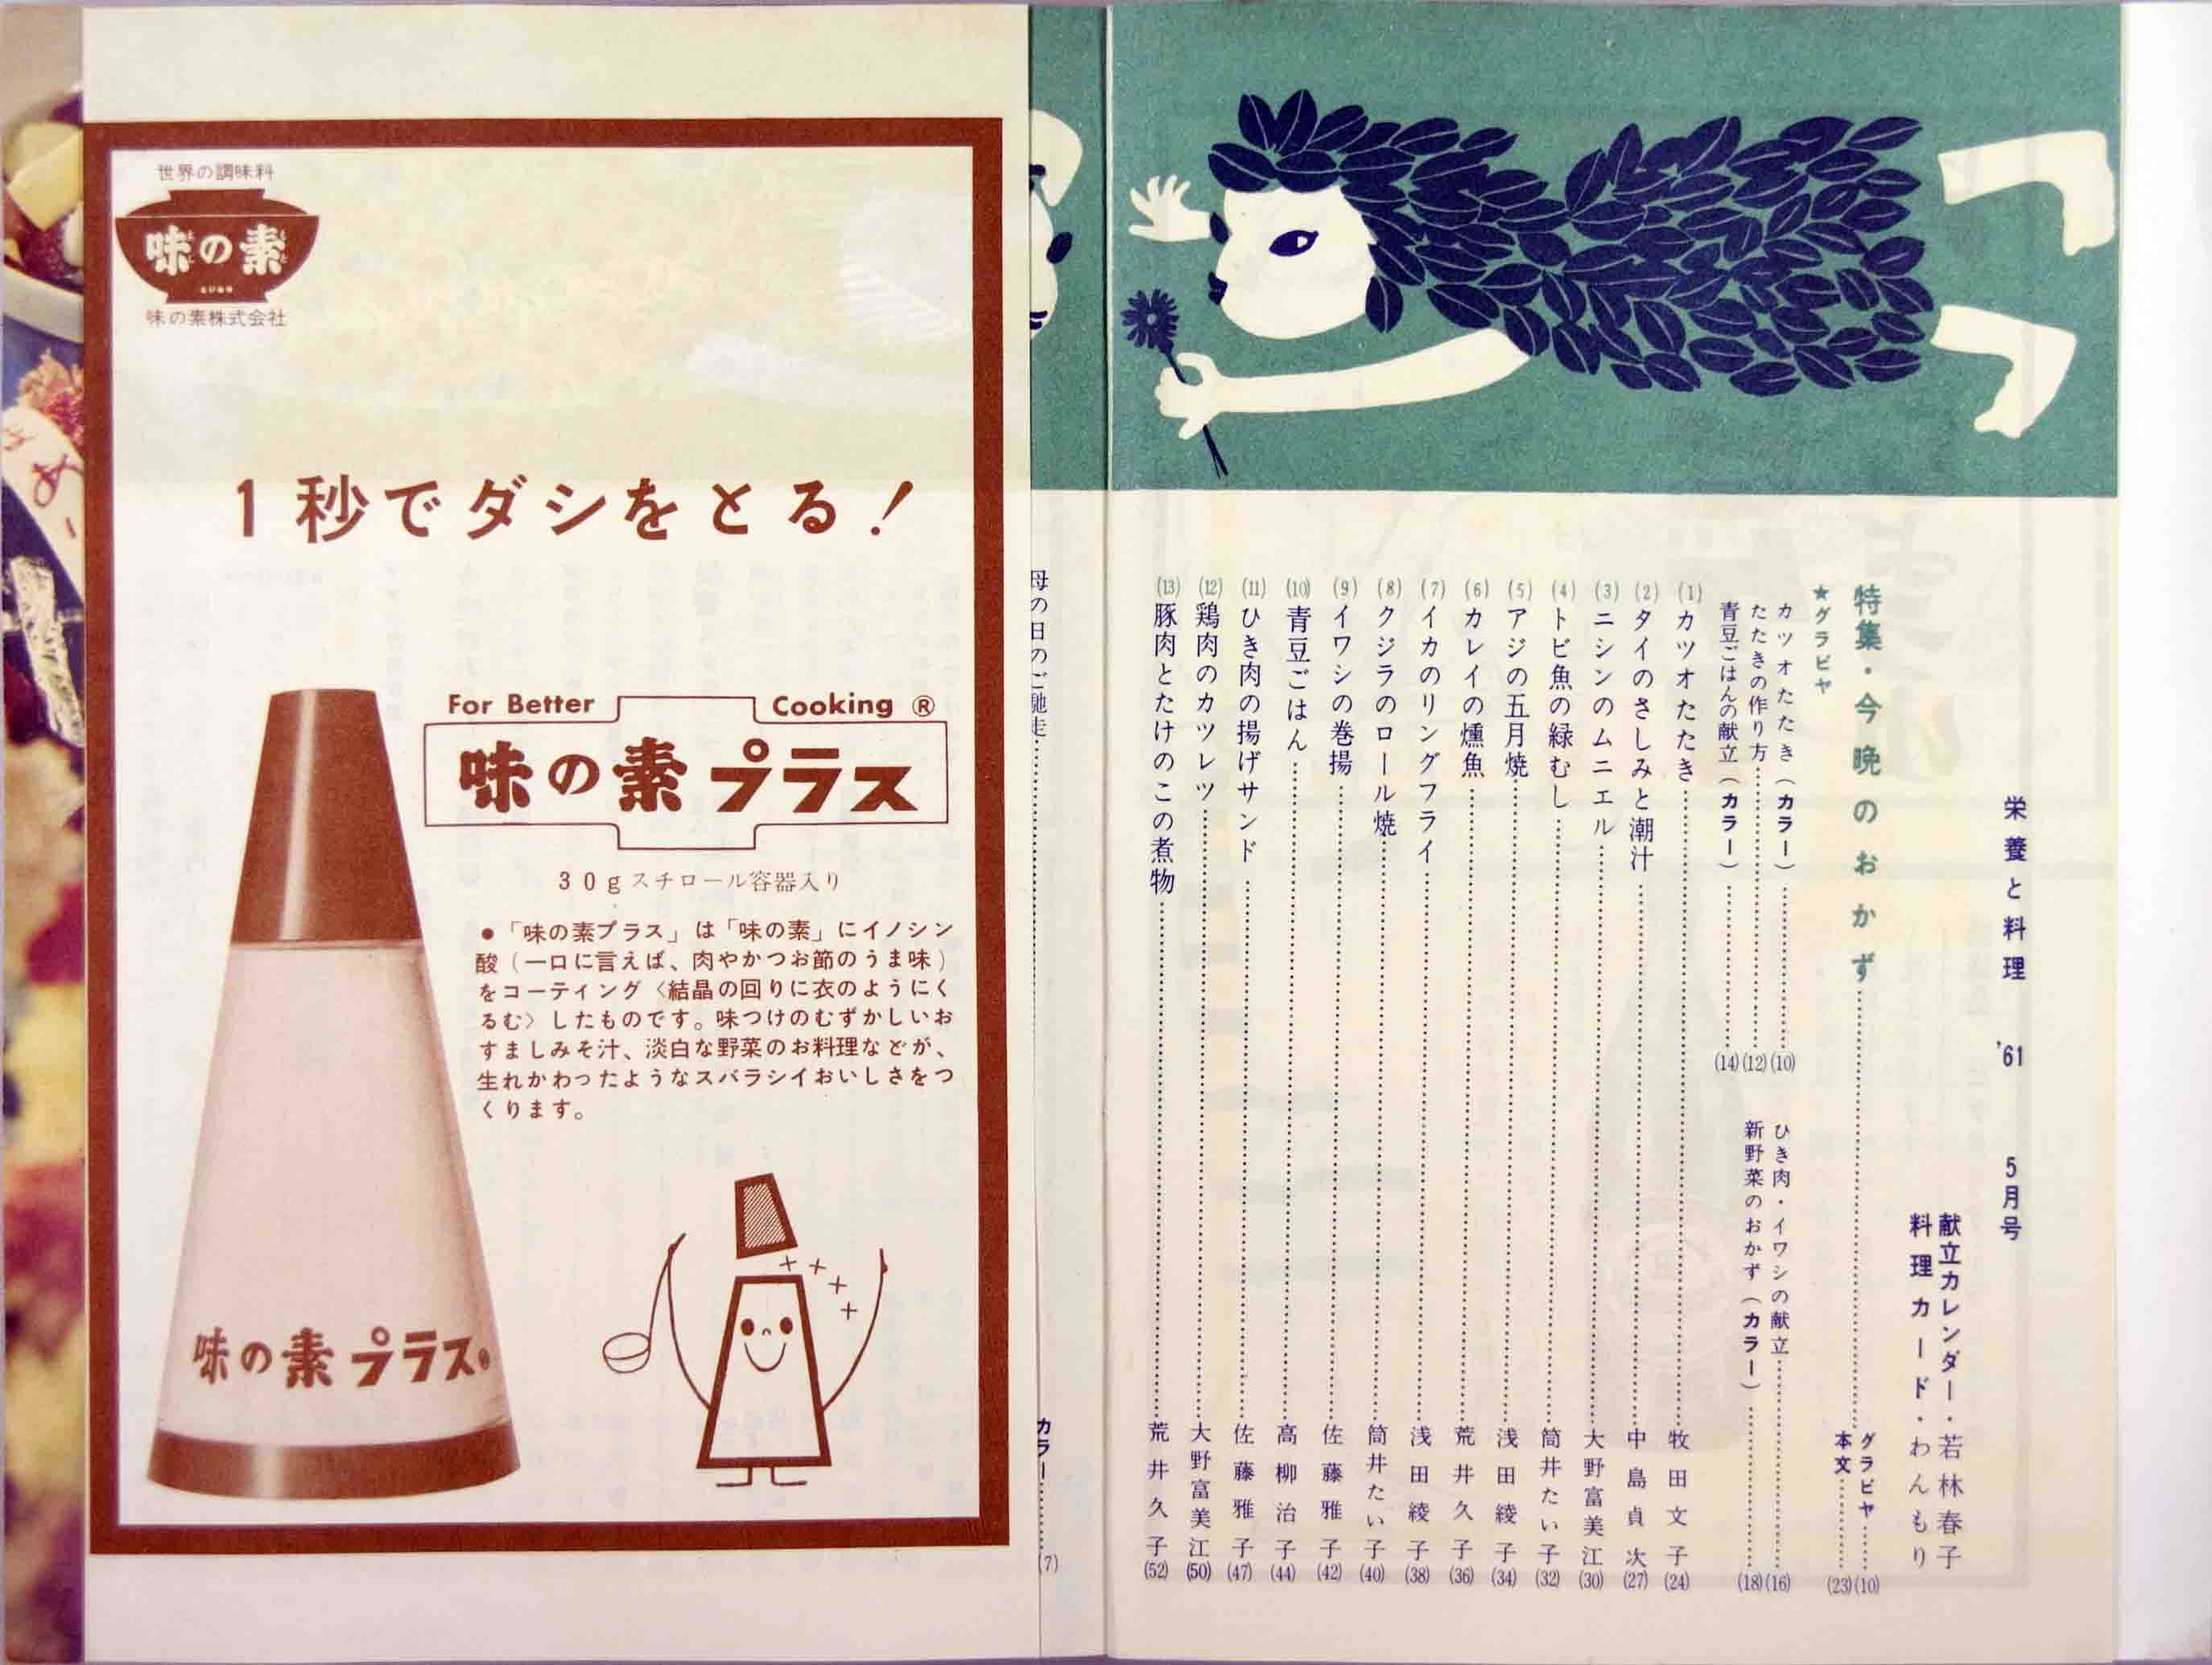 栄養と料理 '61 5月号
献立カレンダー・若林春子
料理カード・わんもり
特集・今晩のおかず……グラビヤ……(10)
本文……(23)
★グラビヤ
カツオたたき(カラー)……(10)
たたきの作り方……(12)
青豆ごはんの献立(カラー)……(14)
ひき肉・イワシの献立……(16)
新野菜のおかず(カラー)……(18)
(1)カツオたたき……牧田文子(24)
(2)タイのさしみと潮汁……中島貞次(27)
(3)ニシンのムニエル……大野富美江(30)
(4)トビ魚の緑むし……筒井たい子(32)
(5)アジの五月焼……浅田綾子(34)
(6)カレイの燻魚……荒井久子(36)
(7)イカのリングフライ……浅田綾子(38)
(8)クジラのロール焼……筒井たい子(40)
(9)イワシの巻揚……佐藤雅子(42)
(10)青豆ごはん……高柳治子(44)
(11)ひき肉の揚げサンド……佐藤雅子(47)
(12)鶏肉のカツレツ……大野富美江(50)
(13)豚肉とたけのこの煮物……荒井久子(52)
母の日のご馳走……カラー……(7)
世界の調味料
味の素
味の素株式会社
1秒でダシをとる!
For Better Cooking ®
味の素プラス
30gスチロール容器入り
●「味の素プラス」は「味の素」にイノシン
酸(一口に言えば、肉やかつお節のうま味)
をコーティング〈結晶の回りに衣のようにく
るむ〉したものです。味つけのむずかしいお
すましみそ汁、淡白な野菜のお料理などが、
生れかわったようなスバラシイおいしさをつ
くります。
味の素プラス®